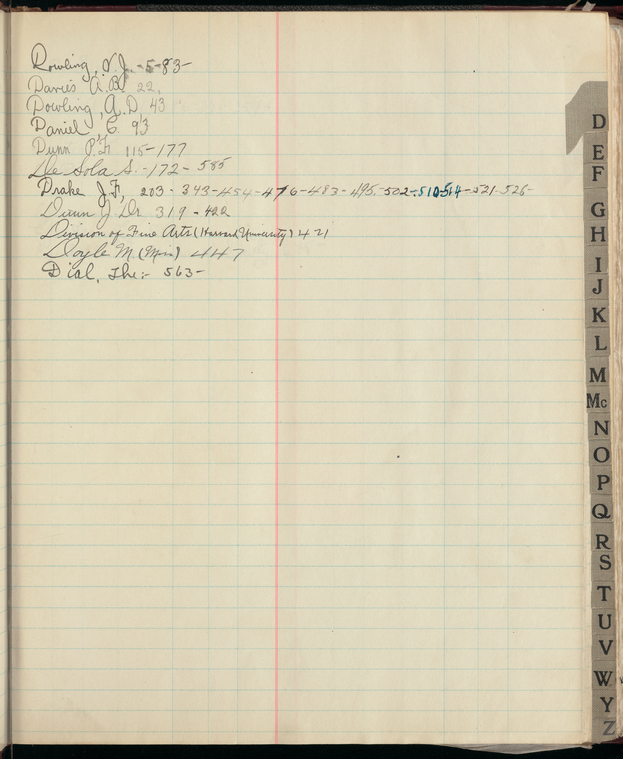 Rowling, V. J. -5-83-
Davies A. B. 22,
Dowling, A. D 43
Daniel, C. 93
Dunn P. F. 115-177
De Sola S. -172- 585
Drake J. F, 203 - 343-454-476-483-495-502-510-514-521-526-
Dunn J. Dr 319 - 422
Division of Fine Arts (Harvard University) 421
Doyle M. (Miss) 447
Dial, The:- 563-
D
E
F
G
H
I
J
K
L
M
Mc
N
O
P
Q
R
S
T
U
V
W
Y
Z